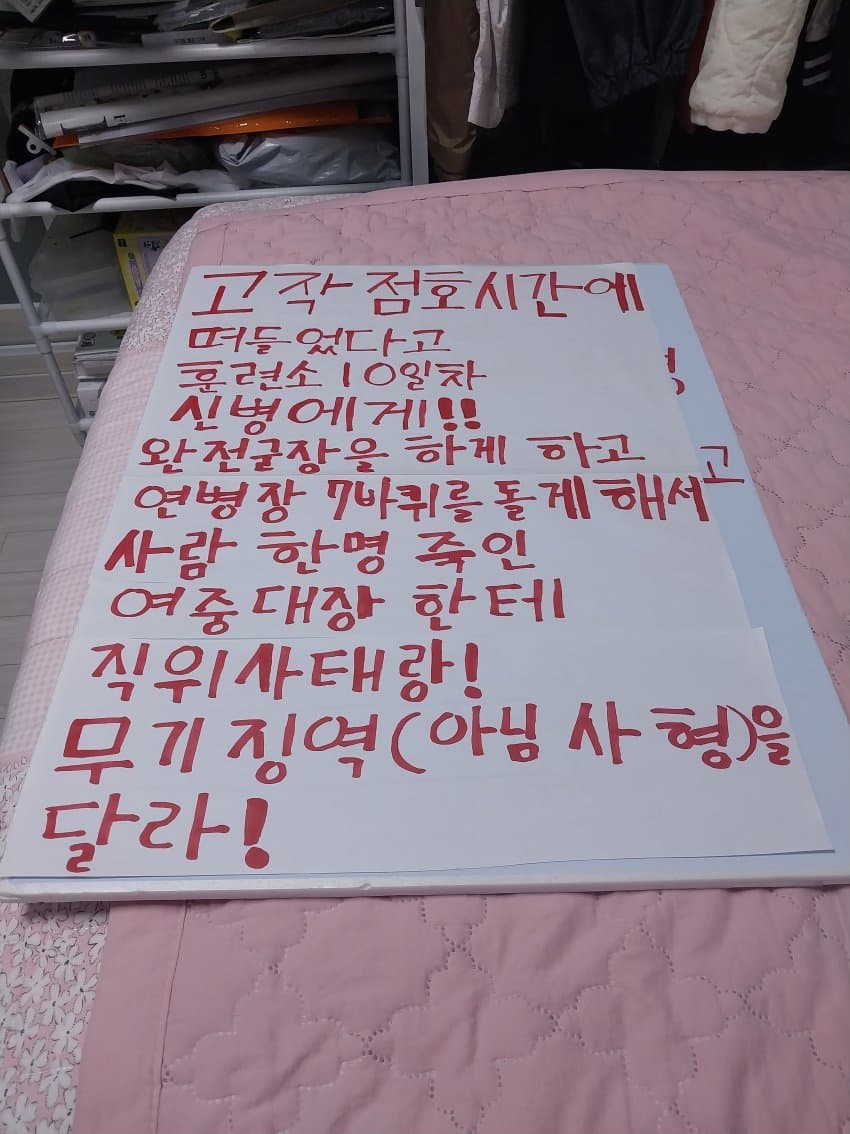 고작 점호시간에
떠들었다고
훈련소 10일차
신병에게!!
완전굳장을 하게 하고
연병장 7바퀴를 돌게 해서
사람 한명 죽인
여중대장 한테
직위사태랑!
무기징역(아님 사형)을
달라!
고